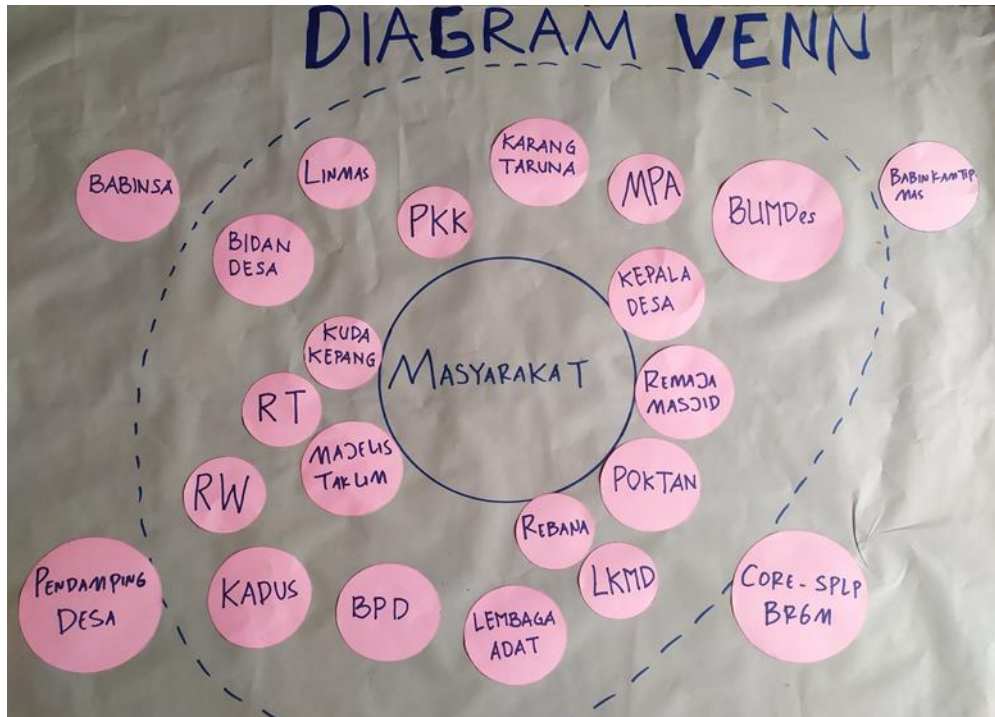 DIAGRAM VENN
BABINSA
LINMAS
KARANG
TARUNA
MPA
BABINKAMTIP
MAS
PKK
BUMDes
BIDAN
DESA
KEPALA
DESA
KUDA
KEPANG
MASYARAKAT
REMAJA
MASJID
RT
MAJELIS
TAKLIM
POKTAN
RW
REBANA
PENDAMPING
DESA
KADUS
BPD
LEMBAGA
ADAT
LKMD
CORE-SPLP
BRGM